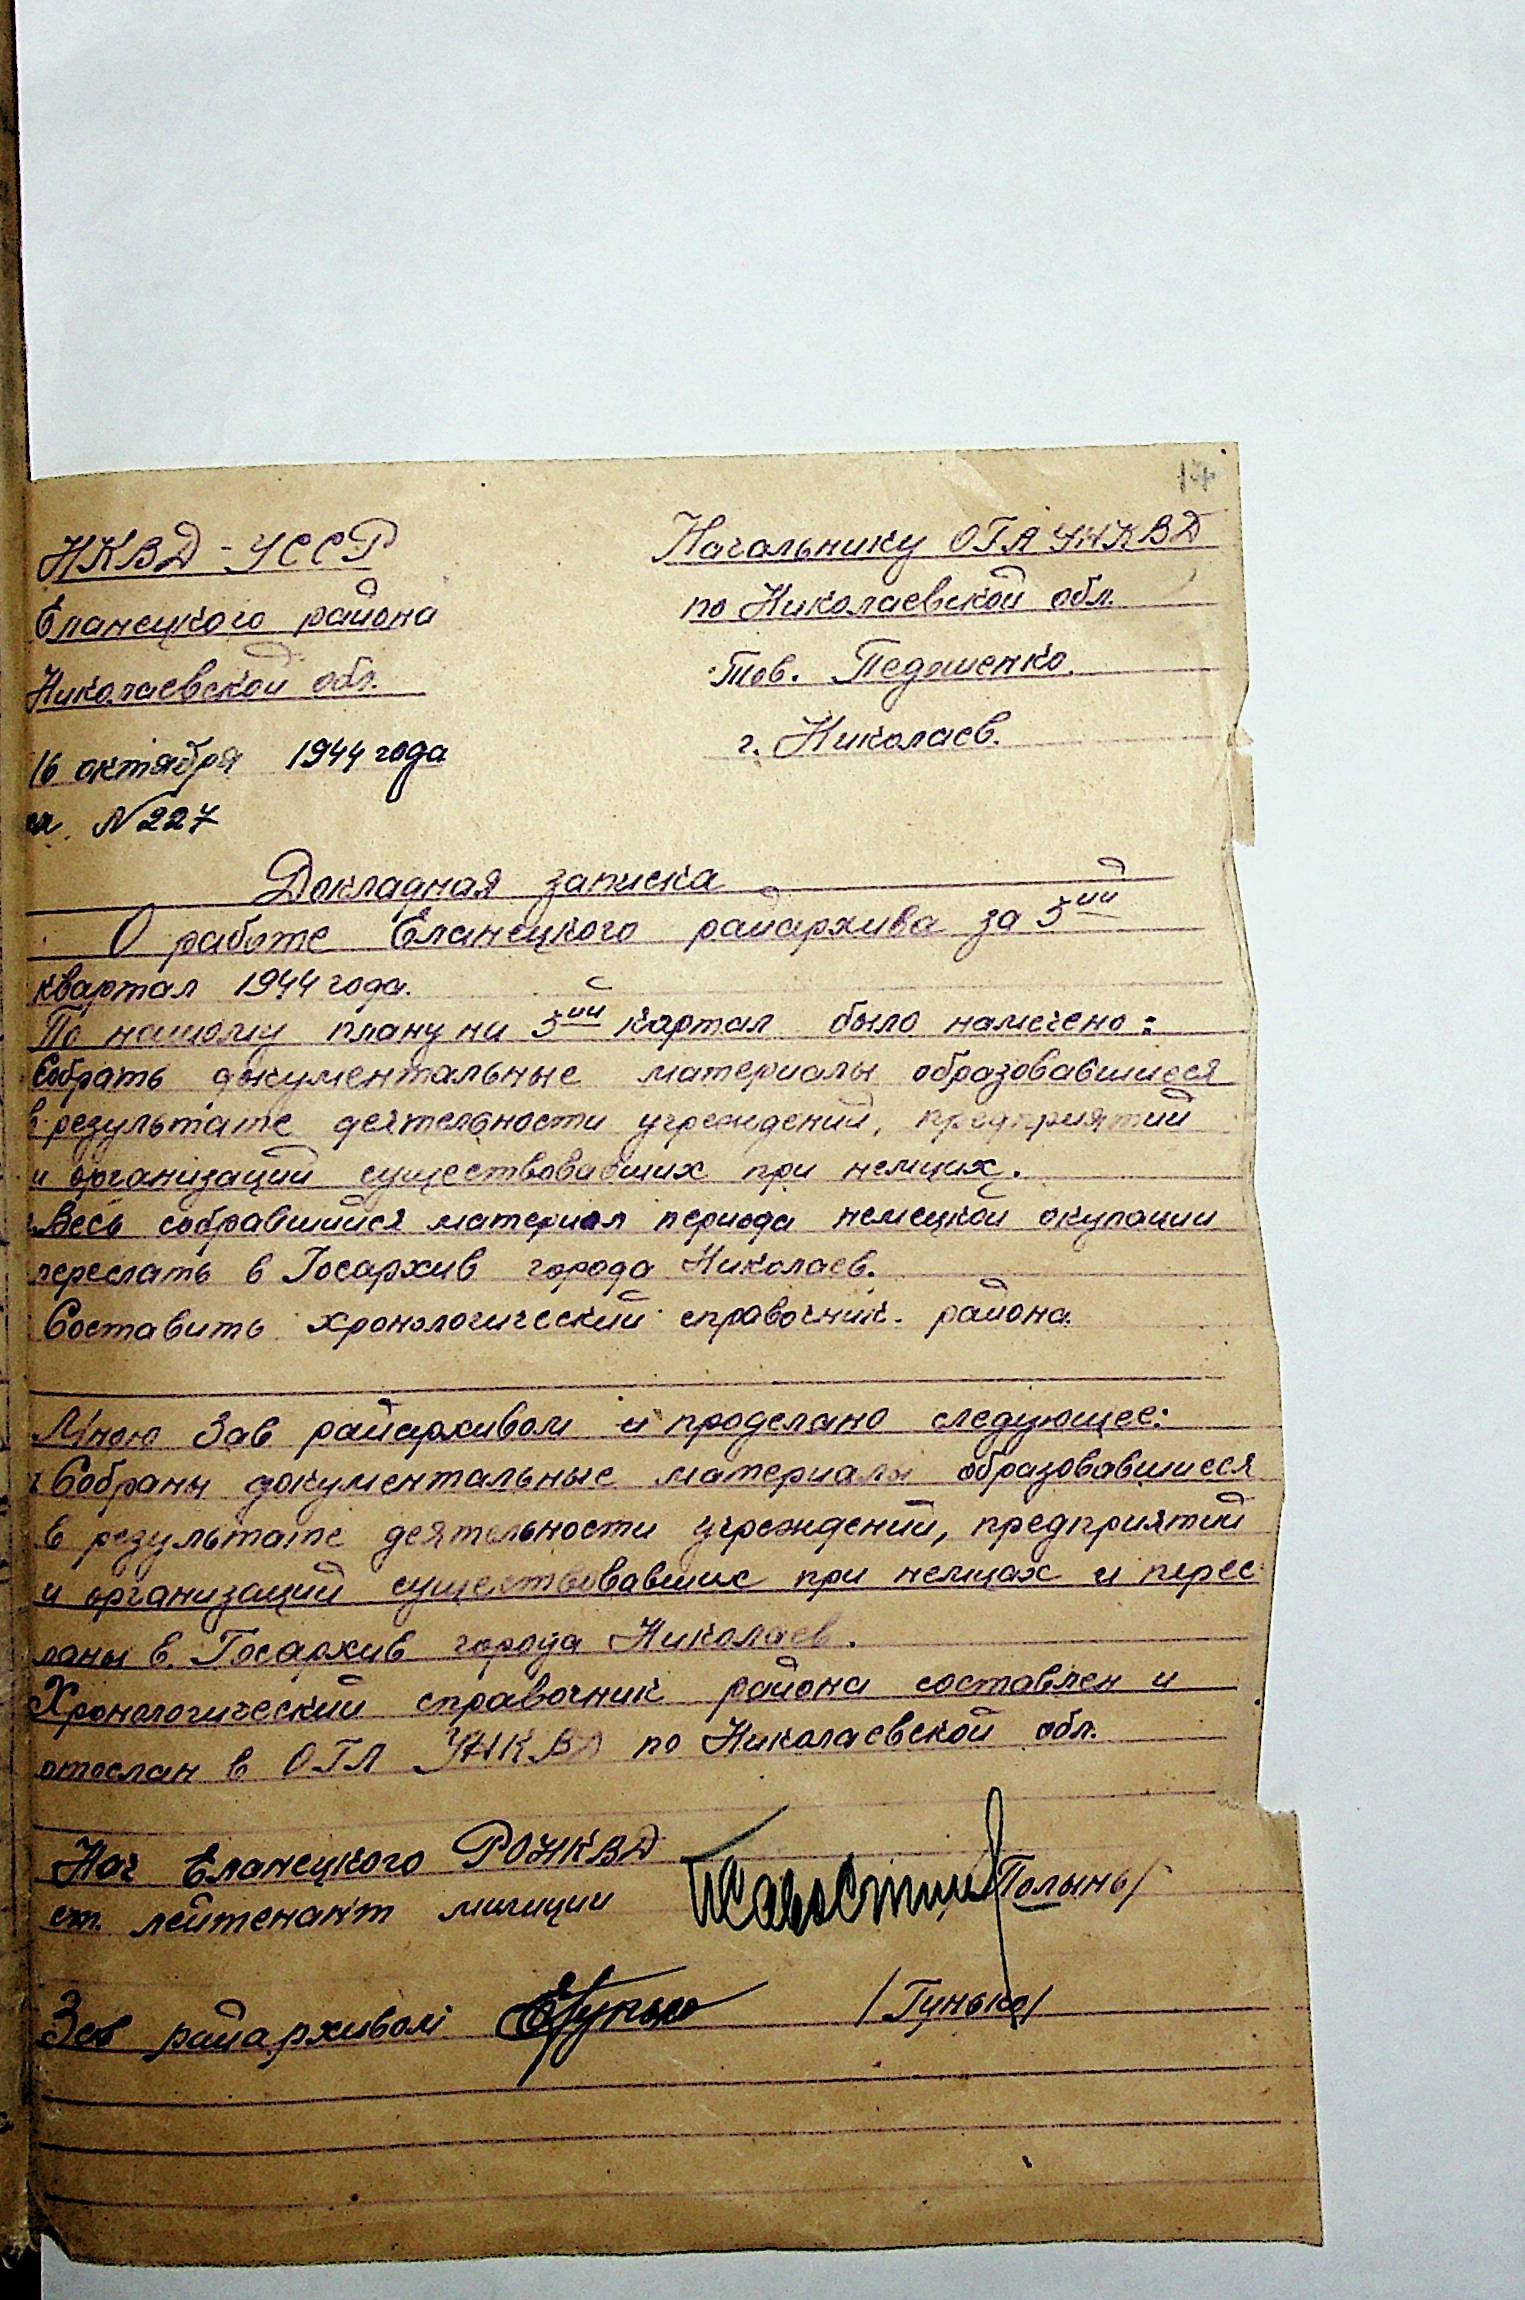 17
НКВД - УССР
Еланецкого района
Николаевской обл.
16 октября 1944 года
N 227
Начальнику ОГА УНКВД
по Николаевской обл.
Тов. Педошенко.
г. Николаев.
Докладная записка
О работе Еланецкого райархива за 3ий
квартал 1944 года.
По нашому плану на 3ий картал было намечено:
Собрать документальные материалы образовавшиеся
в результате деятельности учреждений, предприятий
и организаций существовавших при немцих.
Весь собравшийся материал периода немецкой окупации
переслать в Госархив города Николаев.
Составить хронологический справочник района.
Мною Зав райархивом и проделано следующее:
Собраны документальные материалы образовавшиеся
в результате деятельности учреждений, предприятий
и организаций существовавших при немцах и перес
ланы в Госархив города Николаев.
Хронологический справочник района составлен и
отослан в ОГА УНКВД по Николаевской обл.
Нач Еланецкого РОНКВД
ст. лейтенант милиции Полынь/
Зав райархивом /Гунько/